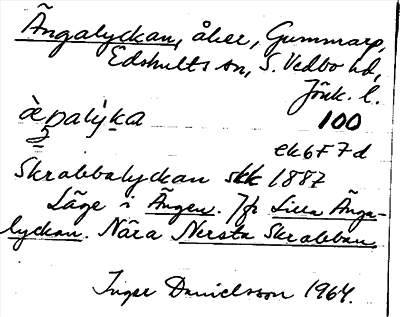 Ängalyckan, åker, Gummarp,
Edshults sn, S. Vedbo hd,
Jönk. l.
100
ek6F7d
Skrabbalyckan skk 1887
Läge i Ängen. Jfr Lilla Änga-
lyckan. Nära Nersta Skrabban
Inger Danielsson 1964.